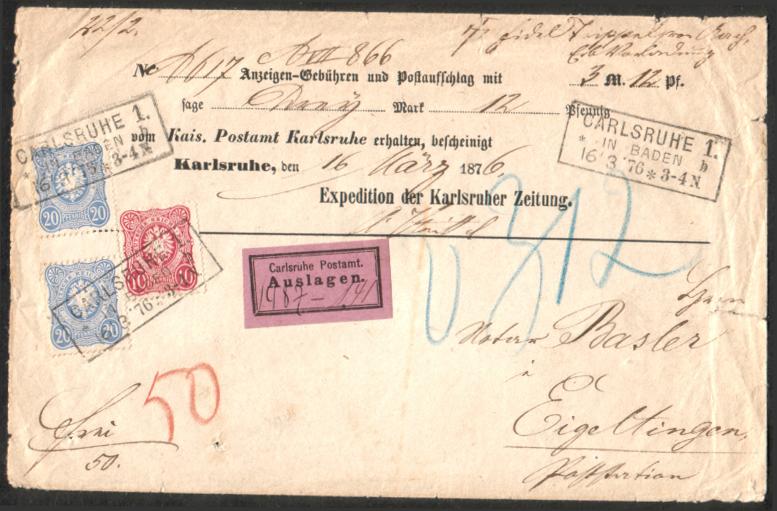 22/2.
No 1617 866
Anzeigen-Gebühren und Postaufschlag mit 3 M. 12 Pf.
sage Drey Mark 12 Pfennig
vom Kais. Postamt Karlsruhe erhalten, bescheinigt
Karlsruhe, den 16 März 1876.
Expedition der Karlsruher Zeitung.
CARLSRUHE 1.
IN BADEN
16 3 76 * 3-4 N
CARLSRUHE 1.
* IN BADEN h
16 3 76 * 3-4 N.
20 PFENNIGE 20
10 10
20 20
CARLSRUHE
Carlsruhe Postamt.
Auslagen.
312
Herrn
Notar Basler
in
Eigeltingen,
Poststation
50
frei
50.